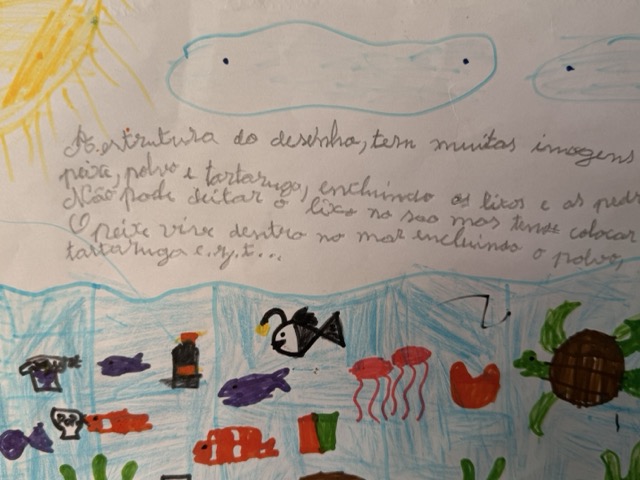 A estrutura do desenho, tem muitas imagens
peixe, polvo e tartaruga, encluindo os lixos e as pedr
Não pode deitar o lixo no sao mas tens colocar
O peixe vive dentro no mar encluindo o polvo,
tartaruga e.r.t...